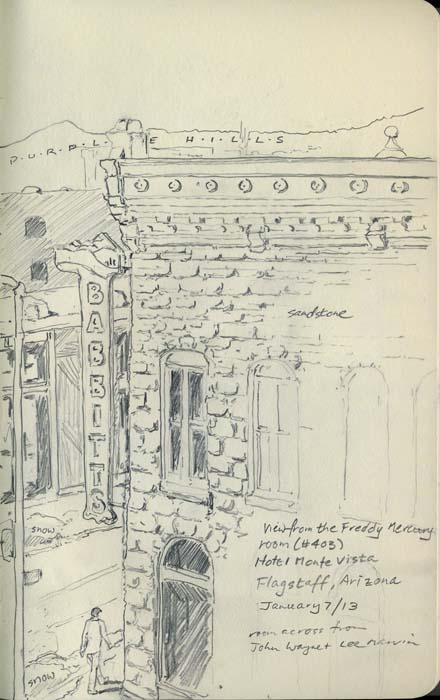 PURPLE HILLS
BABBITTS
sandstone
snow
View from the Freddy Mercury
room (#403)
Hotel Monte Vista
Flagstaff, Arizona
January 7/13
room across from
John Wayne & Lee Marvin
snow